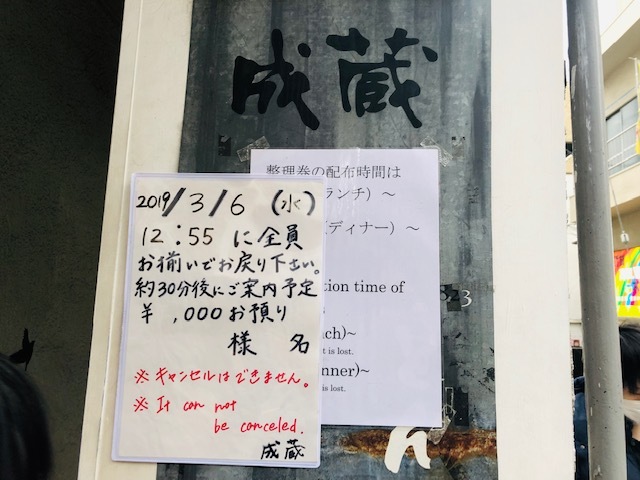 成蔵
整理券の配布時間は
ランチ）～
（ディナー）～
tion time of
ch)~
t is lost.
nner)~
is lost.
823
2019/3/6 (水)
12:55 に全員
お揃いでお戻り下さい。
約30分後にご案内予定
¥ ,000お預り
様 名
※キャンセルはできません。
※ It can not
be canceled.
成蔵